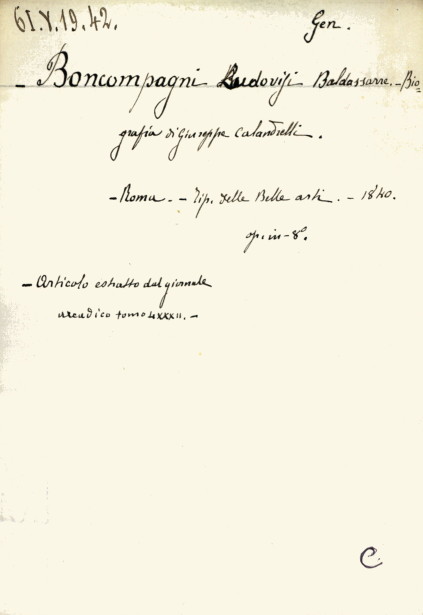 61.V.19.42. Gen.
- Boncompagni Ludovisi Baldassarre. - Bio-
grafia di Giuseppe Calandrelli.
- Roma. - Tip. delle Belle arti. - 1840.
op. in-8°.
- Articolo estratto dal giornale
arcadico tomo LXXXII. -
C.